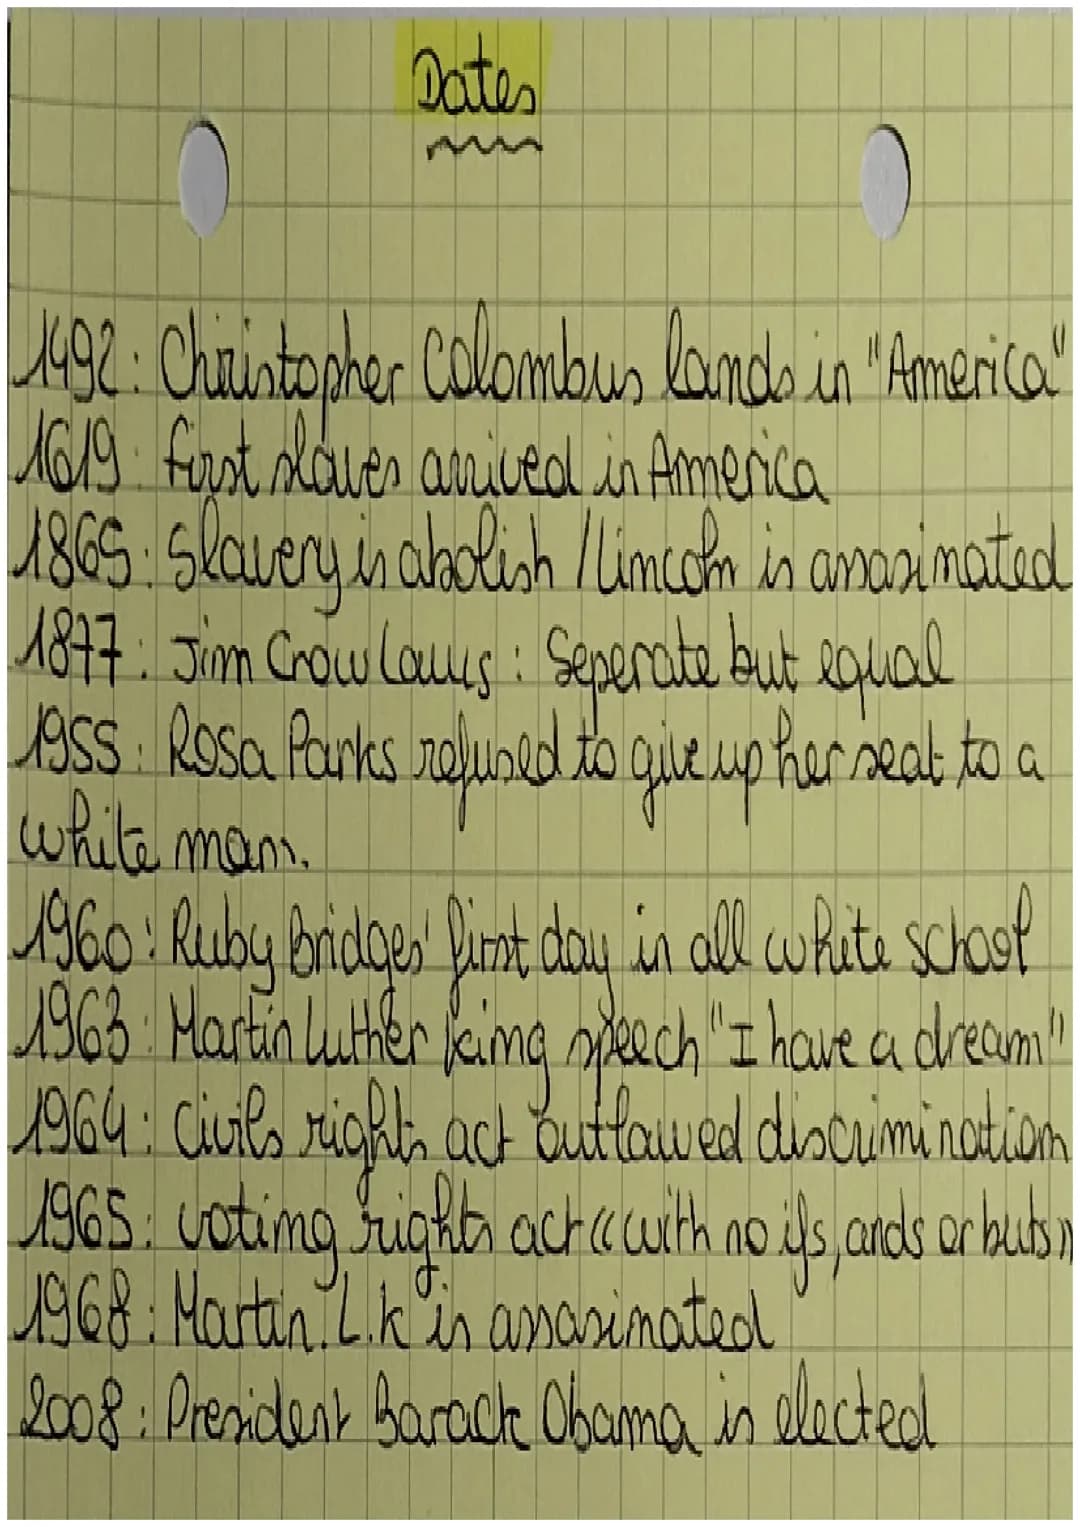 Dates
1492: Christopher Colombus lands in "America"
1619: first slaves arrived in America
1865: Slavery is abolish / Lincoln is assasinated
1877: Jim Crow Laws : Seperate but equal
1955: Rosa Parks refused to give up her seat to a
white man.
1960: Ruby Bridges' first day in all white school
1963: Martin Luther king speech "I have a dream"
1964: Civils rights act outlawed discrimination
1965: voting rights act «with no ifs, ands or buts»
1968: Martin. L.k is assasinated
2008: President Barack Obama is elected